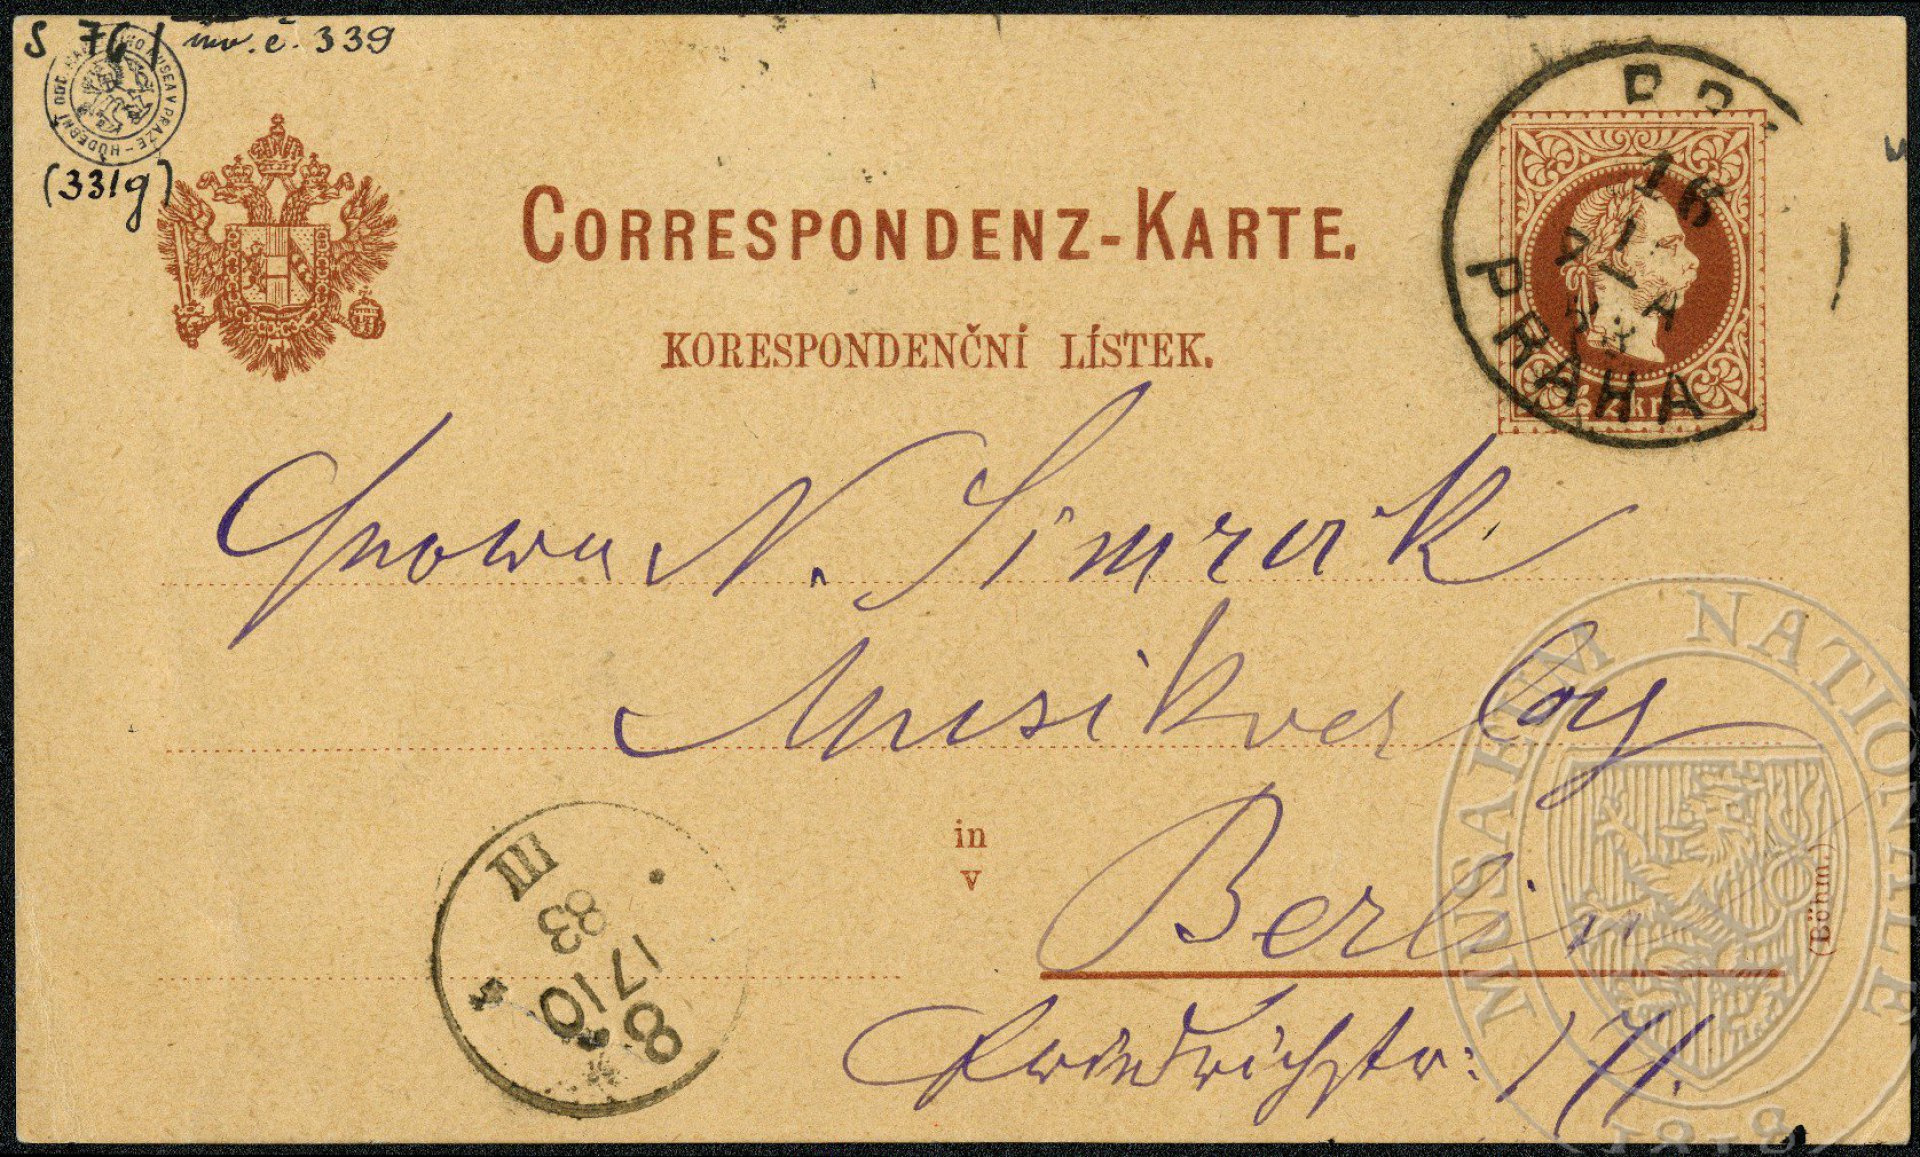 S 76/ inv. č. 339
HUDEBNÍ ODD. NÁRODNÍHO MUSEA V PRAZE
(331g)
CORRESPONDENZ-KARTE.
KORESPONDENČNÍ LÍSTEK.
PRAHA
16
Simrock
Musikverlag
in
v
Berlin
(Böhm.)
Friedrichstr: 171.
III
83
17 10
8
MUSAEUM NATIONALE
1818